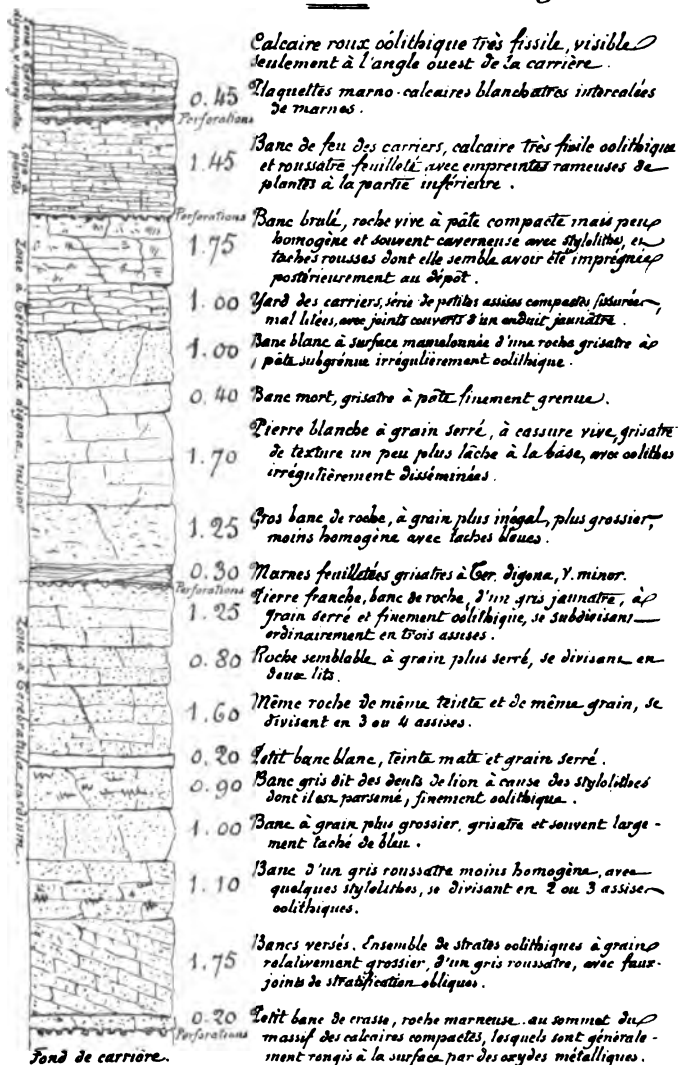 Calcaire roux oolithique très fissile, visible
seulement à l'angle ouest de la carrière.
0.45 Plaquettes marno-calcaires blanchatres intercalées
de marnes.
Perforations
1.45 Banc de feu des carriers, calcaire très fissile oolithique
et roussatre feuilleté avec empreintes rameuses de
plantes à la partie inférieure.
Perforations
1.75 Banc brulé, roche vive à pâte compacte mais peu
homogène et souvent caverneuse avec stylolithes, en
taches rousses dont elle semble avoir été imprégnée
postérieurement au dépôt.
1.00 Yard des carriers, série de petites assises compactes fissurées,
mal litées, avec joints couverts d'un enduit jaunâtre.
1.00 Banc blanc à surface mamelonnée d'une roche grisatre à
pâte subgrénue irrégulièrement oolithique.
0.40 Banc mort, grisatre à pâte finement grenue.
1.70 Pierre blanche à grain serré, à cassure vive, grisatre
de texture un peu plus lâche à la base, avec oolithes
irrégulièrement disséminées.
1.25 Gros banc de roche, à grain plus inégal, plus grossier,
moins homogène avec taches bleues.
0.30 Marnes feuilletées grisatres à Ter. digona, V. minor.
Perforations
1.25 Pierre franche, banc de roche, d'un gris jaunatre, à
grain serré et finement oolithique, se subdivisant
ordinairement en trois assises.
0.80 Roche semblable à grain plus serré, se divisant en
deux lits.
1.60 Même roche de même teinte et de même grain, se
divisant en 3 ou 4 assises.
0.20 Petit banc blanc, teinte mate et grain serré.
0.90 Banc gris dit des dents de lion à cause des stylolithes
dont il est parsemé, finement oolithique.
1.00 Banc à grain plus grossier, grisatre et souvent large-
ment taché de bleu.
1.10 Banc d'un gris roussatre moins homogène, avec
quelques stylolithes, se divisant en 2 ou 3 assises
oolithiques.
1.75 Bancs versés. Ensemble de strates oolithiques à grain
relativement grossier, d'un gris roussatre, avec faux-
joints de stratification obliques.
0.20 Petit banc de crasse, roche marneuse au sommet du
Perforations
massif des calcaires compactes, lesquels sont générale-
ment rongés à la surface par des oxydes métalliques.
Fond de carrière.
Zone à
Zone à Terebratula digona, minor
Zone à Terebratula cardium.